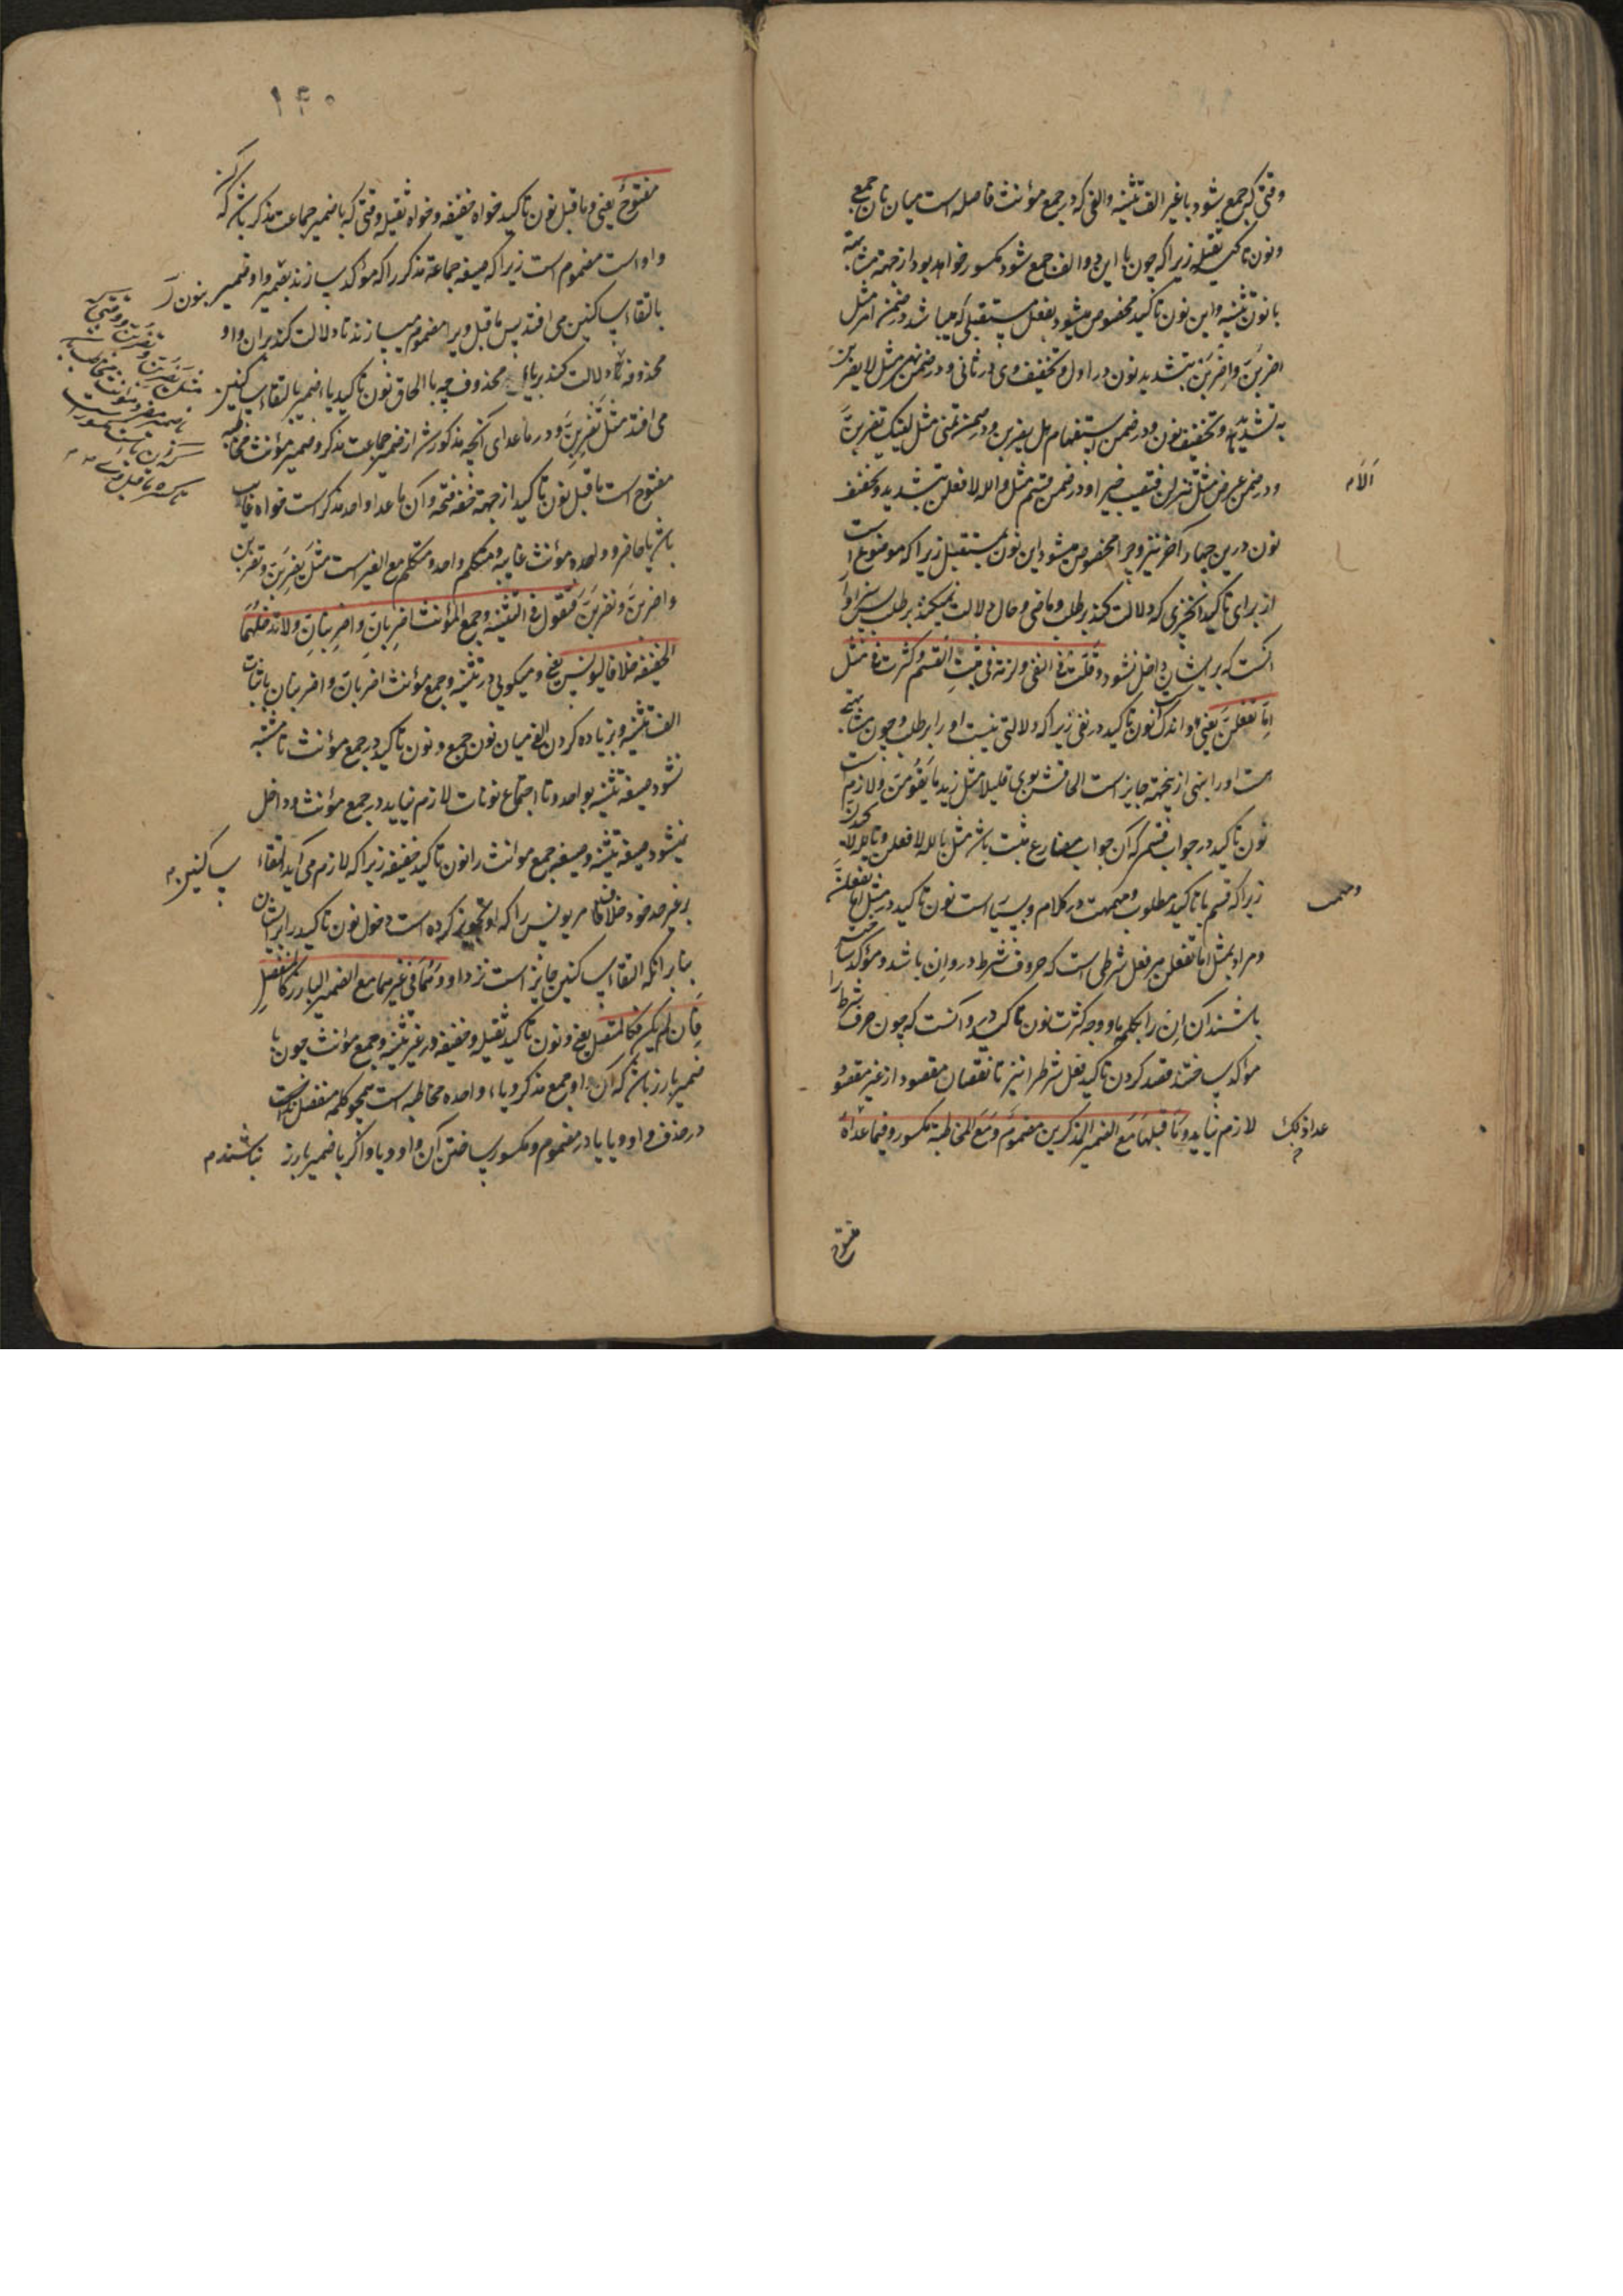 وقتی که جمع بشود با غیر الف تثنیه والفی که در جمع مؤنث فاصله است میان نان جمع
ونون تاکید ثقیله زیرا که چون با این دو الف جمع شود مکسور خواهد بود از جهة مشابهته
با نون تثنیه واین نون تاکید مخصوص میشود بفعل مستقبلی که میباشد در ضمن امر مثل
اضربنّ واضربن بتشدید نون در اول وتخفیف وی در ثانی ودر ضمن نهی مثل لا یضربن
به تشدید وتخفیف نون ودر ضمن استفهام هل یضربن ودر ضمن تمنی مثل لیتک تضربنّ
ودر ضمن عرض مثل الا تنزلن فتصیب خیرا ودر ضمن قسم مثل والله لافعلن بتشدید وتخفیف
نون درین چهار آخر نیز وچرا مخصوص میشود این نون بمستقبل زیرا که موضوع است
از برای تاکید آنچیزی که دلالت کند بر طلب وماضی وحال دلالت نمیکند بر طلب پس سزاوار
آنست که بریشان داخل نشود وقلت فی النفی ولزمت فی مثبت القسم وکثرت فی مثل
اما تفعلن یعنی واندک است نون تاکید در نفی زیرا که دلالتی نیست او را بر طلب وچون مشابهتی
هست او را بنهی ازینجهة جایز است الحاقش بوی قلیلا مثل زید ما یقومن ولازم است
نون تاکید در جواب قسم که آن جواب مضارع مثبت باشد مثل بالله لافعلن وتالله لا
زیرا که قسم با تاکید مطلوب در کلام وبسیار است نون تاکید در مثل اما تفعلنّ
ومراد بمثل اما تفعلن هر فعل شرطی است که حروف شرط در وان باشد ومؤکد ساخته
باشند آن ان را بکلمه ما ووجه کثرت نون تاکید در و آنست که چون حرف شرط را
مؤکد ساختند قصد کردن تاکید فعل شرط را نیز تا نقصان مقصود از غیر مقصود
لازم نیاید وما قبلها مع الضمیر المذکرین مضموم ومع المخاطبة مکسور وفیما عداه
عدا ذلک
مفتوح
۱۴۰
مفتوح یعنی وما قبل نون تاکید خواه خفیفه وخواه ثقیله وقتی که با ضمیر جماعت مذکر باشد که
واو است مضموم است زیرا که صیغه جماعة مذکر را که مؤکد سازند بضمیر واو ضمیر بنون
بالتقاء ساکنین می افتد پس ما قبل ویرا مضموم میسازند تا دلالت کند بران واو
محذوفه تا دلالت کند بر یاء محذوف چه با الحاق نون تاکید یاء ضمیر بالتقاء ساکنین
می افتد مثل تضربنّ ودر ما عدای آنچه مذکور شد از ضمیر جماعت مذکر وضمیر مؤنث مخاطبه
مفتوح است ما قبل نون تاکید از جهة خفة فتحه وآن ما عدا واحد مذکر است خواه غایب
باشد یا حاضر وواحده مؤنث غایبه ومتکلم واحد ومتکلم مع الغیر است مثل یضربنّ وتضربن
واضربنّ ونضربنّ فتقول فی التثنیه وجمع المؤنث اضربانّ واضربنانّ ولا تدخلهما
الخفیفه خلافا لیونس یعنی ومیکویی در تثنیه وجمع مؤنث اضربان واضربنان باثبات
الف تثنیه وبزیاده کردن الف میان نون جمع ونون تاکید در جمع مؤنث تا مشتبه
نشود صیغه تثنیه بواحد وتا اجتماع نونات لازم نیاید در جمع مؤنث وداخل
نمیشود صیغه تثنیه وصیغه جمع مؤنث را نون تاکید خفیفه زیرا که لازم می آید التقاء
ساکنین
بر غیر حد خود خلاف مر یونس را که او تجویز کرده است دخول نون تاکید را بر ایشان
بنا بر آنکه التقاء ساکنین جایز است نزد او وهما فی غیرهما مع الضمیر البارز کالمنفصل
فان لم یکن فکالمتصل یعنی ونون تاکید ثقیله وخفیفه در غیر تثنیه وجمع مؤنث چون با
ضمیر بارز باشد که آن واو جمع مذکر ویاء واحده مخاطبه است همچو کلمه منفصل است
در حذف واو ویا یا در مضموم ومکسور ساختن آن واو ویا واکر با ضمیر بارز نباشند